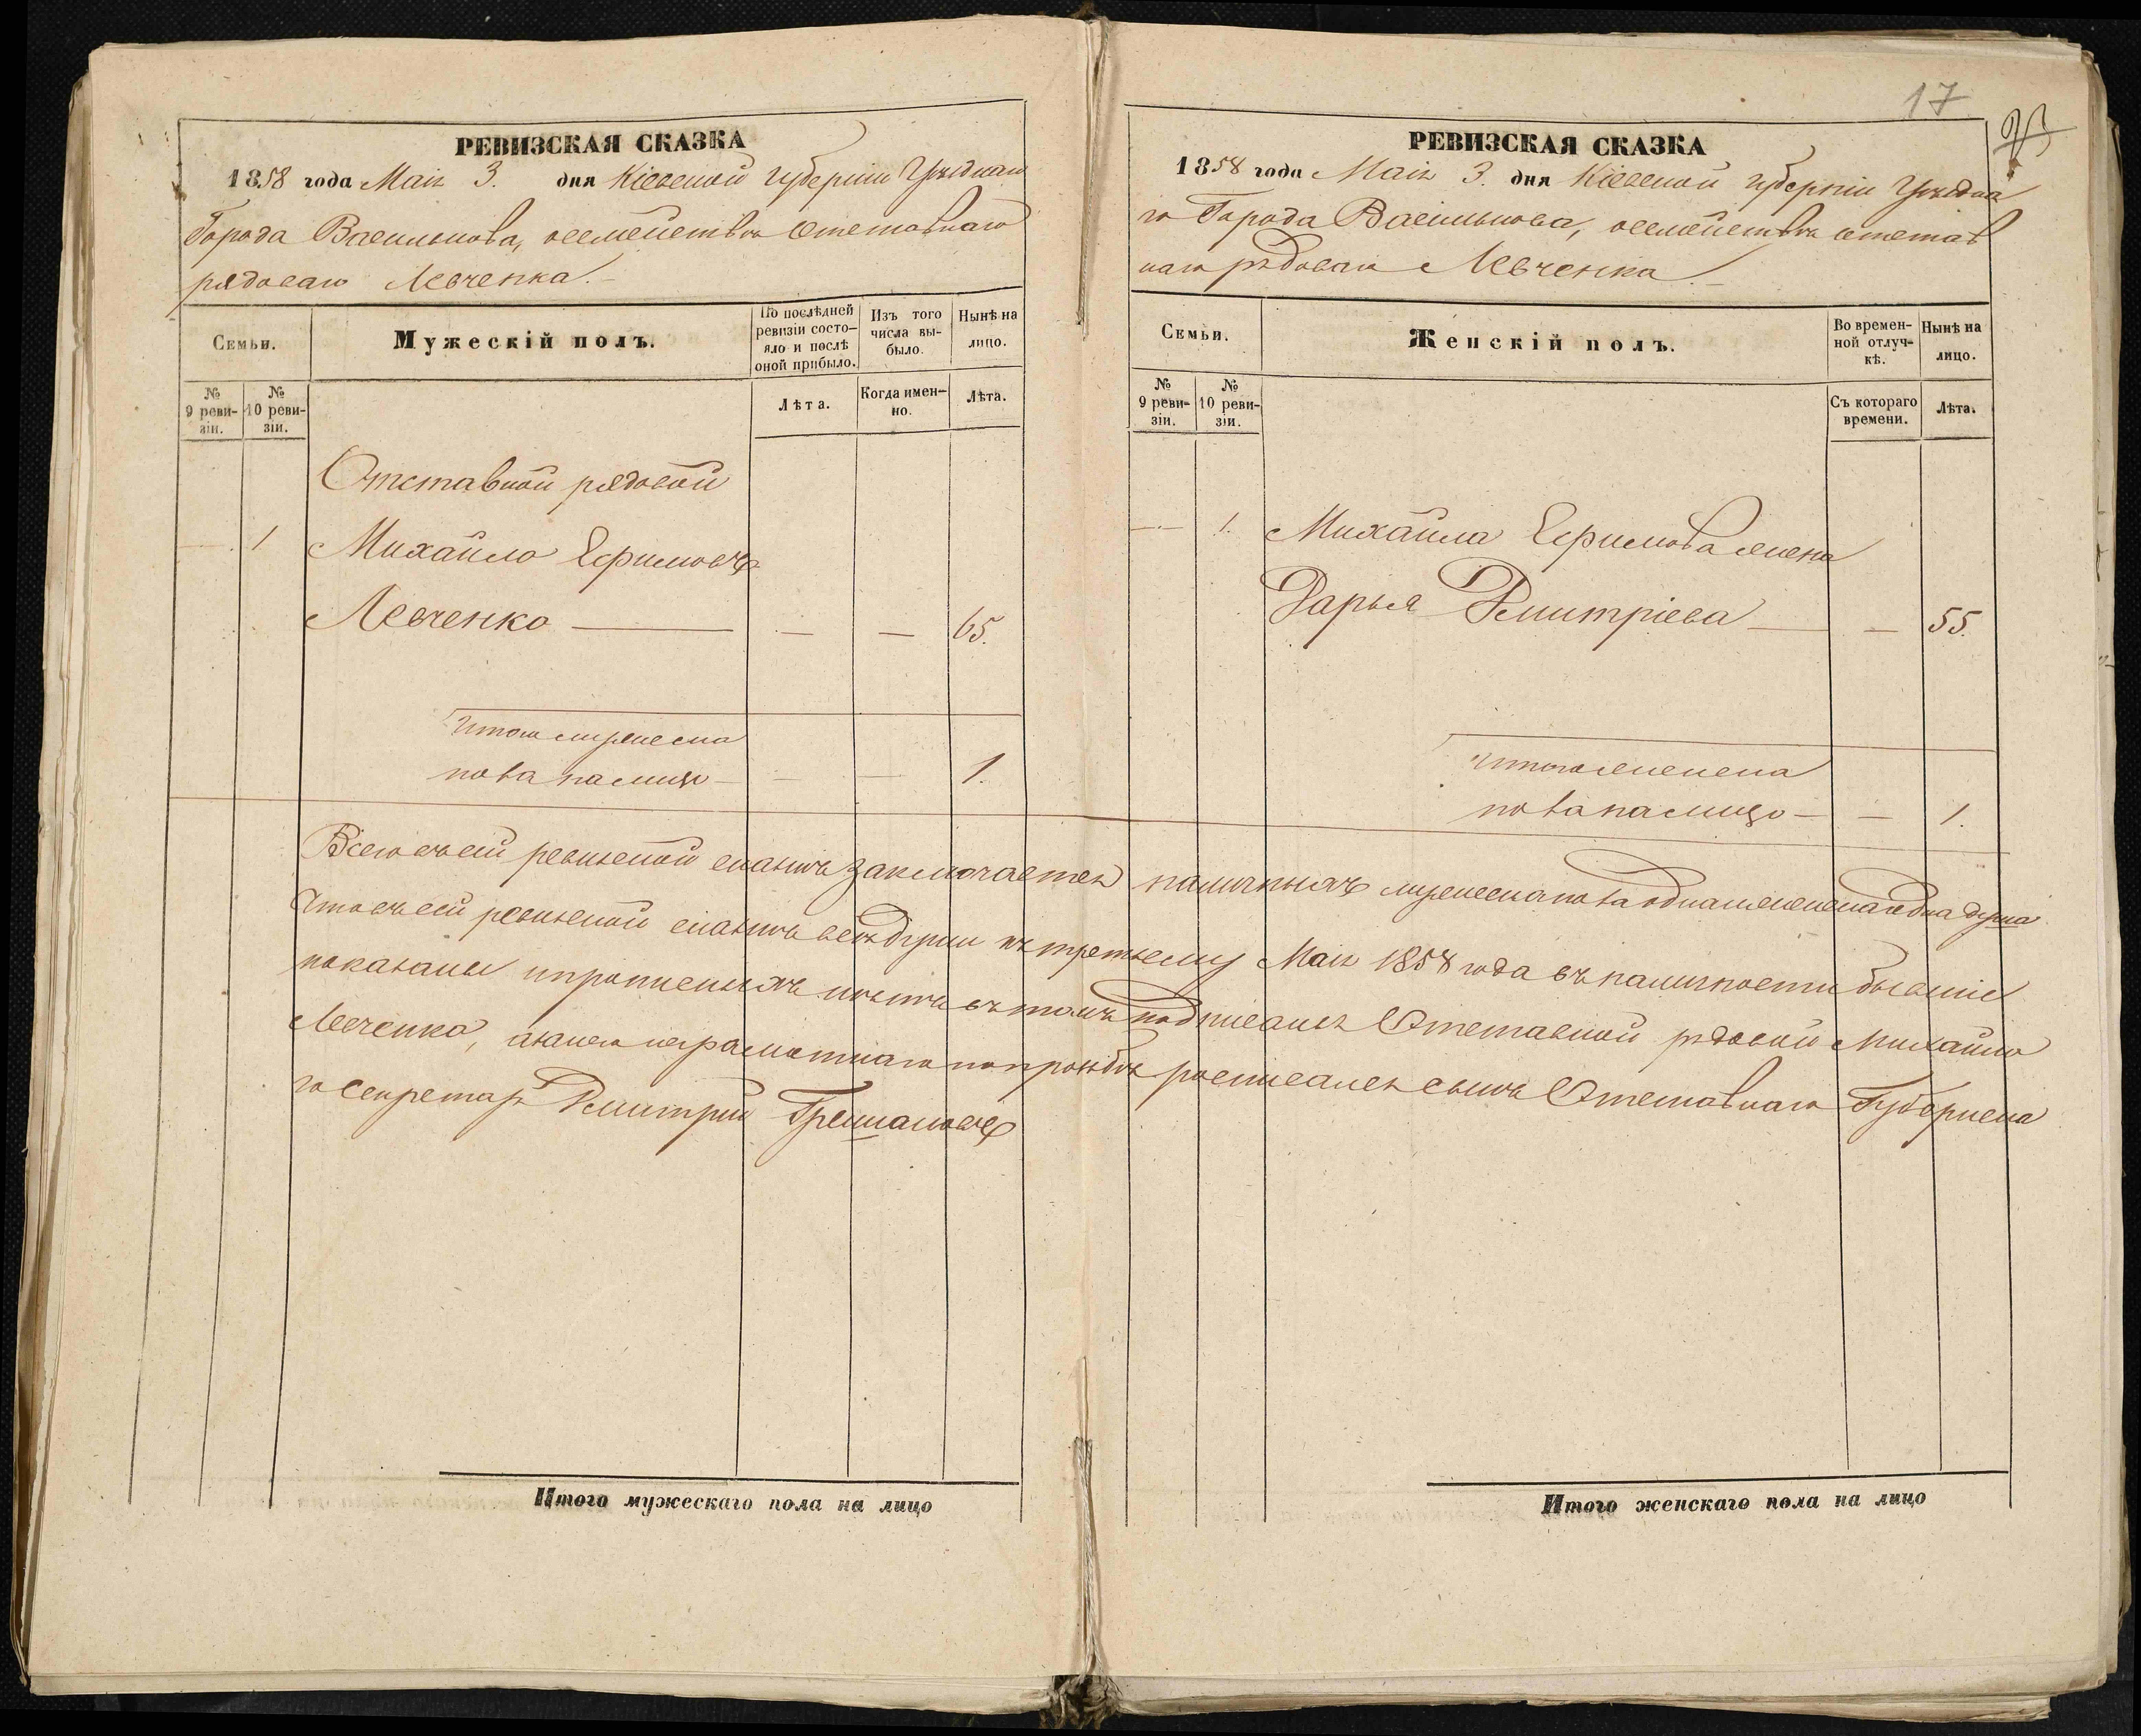 17
РЕВИЗСКАЯ СКАЗКА
1858 года Маія 3. дня Кіевской губерніи Уѣзднаго
Города Василькова, о семействѣ Отставнаго
рядоваго Левченка.
Семьи.
Мужескій полъ.
По послѣдней ревизіи состо-
яло и послѣ оной прибыло.
Изъ того числа вы-
было.
Нынѣ на лицо.
№ 9 реви-
зіи.
№ 10 реви-
зіи.
Лѣта.
Когда имен-
но.
Лѣта.
Отставной рядовой
1 Михайло Ефимовъ
Левченко — — — 65.
Итого мужеска
пола на лицо — — — 1.
РЕВИЗСКАЯ СКАЗКА
1858 года Маія 3. дня Кіевской губерніи Уѣздна
го Города Василькова, о семействѣ отстав
наго рядоваго Левченка.
Семьи.
Женскій полъ.
Во времен-
ной отлуч-
кѣ.
Нынѣ на лицо.
№ 9 реви-
зіи.
№ 10 реви-
зіи.
Съ котораго времени.
Лѣта.
— 1. Михайла Ефимова жена
Дарья Дмитріева — — 55.
Итого женска
пола на лицо — — 1.
Всего въ сей ревизской сказкѣ заключается наличныхъ мужеска пола одна и женска одна душа
Что въ сей ревизской сказкѣ всѣ души къ третьему Маія 1858 года въ наличности бывшіе
показаны и прописныхъ нѣтъ въ томъ подписался Отставной рядовой Михайло
Левченко, а за него неграмотнаго по прозьбѣ росписался сынъ Отставнаго Губернска
го Секретаря Дмитрій
Итого мужескаго пола на лицо
Итого женскаго пола на лицо